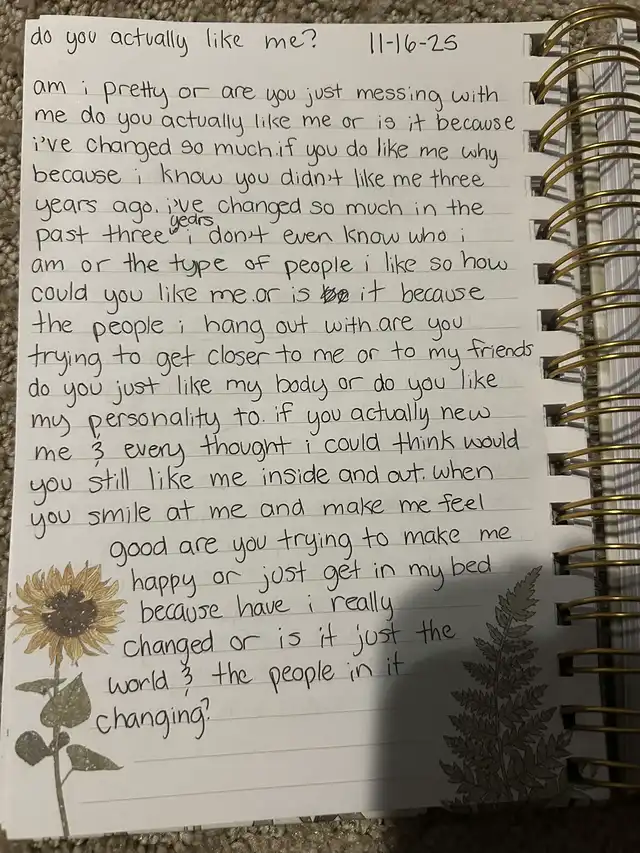 do you actually like me? 11-16-25
am i pretty or are you just messing with
me do you actually like me or is it because
i've changed so much.if you do like me why
because i know you didn't like me three
years ago. i've changed so much in the
past three years i don't even know who i
am or the type of people i like so how
could you like me.or is it because
the people i hang out with.are you
trying to get closer to me or to my friends
do you just like my body or do you like
my personality to. if you actually new
me & every thought i could think would
you still like me inside and out. when
you smile at me and make me feel
good are you trying to make me
happy or just get in my bed
because have i really
changed or is it just the
world & the people in it
changing?